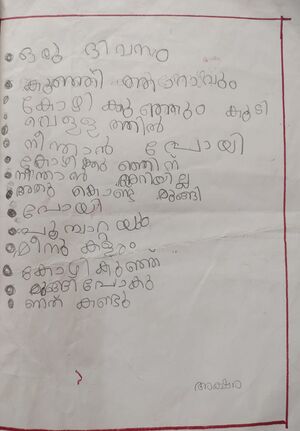 ഒരു ദിവസം
കുഞ്ഞി താറാവും
കോഴി കുഞ്ഞും കൂടി
വെള്ളത്തിൽ
നീന്താൻ പോയി
കോഴികുഞ്ഞിന്
നീന്താൻ അറിയില്ല
അതു കൊണ്ട് മുങ്ങി
പോയി
പൂമ്പാറ്റയും
മീനുകളും
കോഴി കുഞ്ഞ്
മുങ്ങി പോകു
ണത് കണ്ടു
അക്ഷര